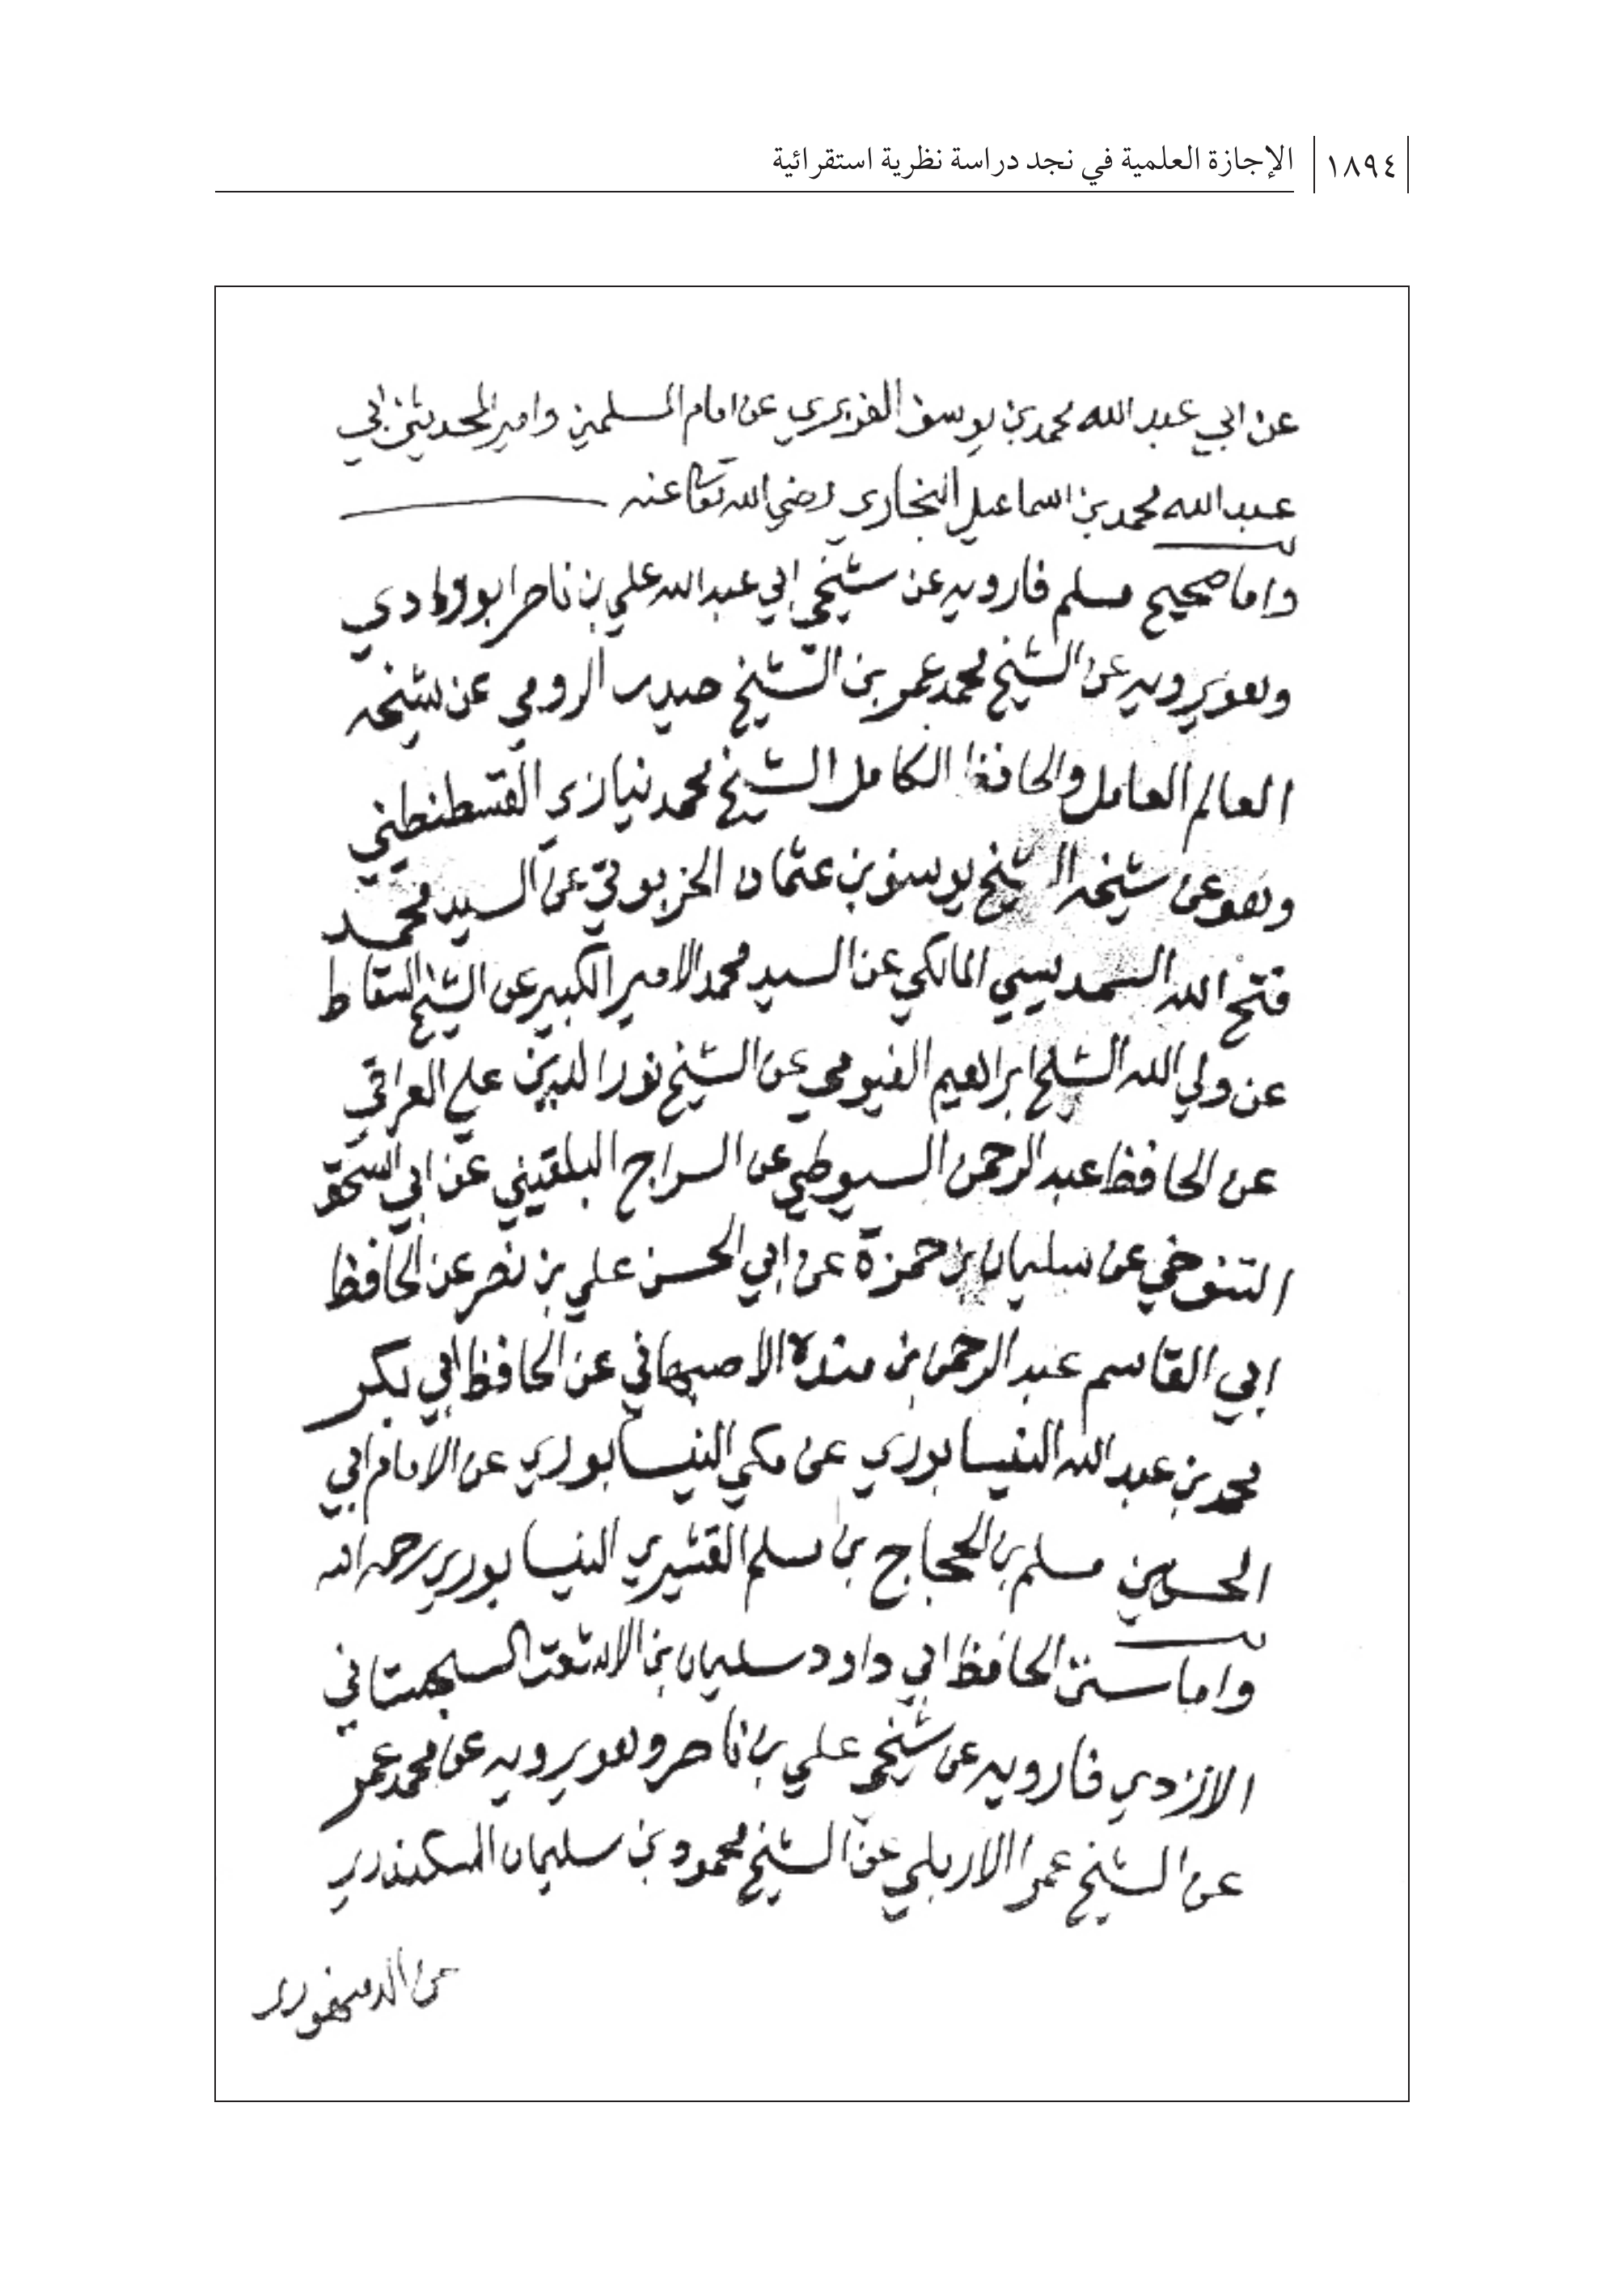 ١٨٩٤ الإجازة العلمية في نجد دراسة نظرية استقرائية
عن ابي عبد الله محمد بن يوسف الفربري عن امام المسلمين وامير المحدثين ابي
عبد الله محمد بن اسماعيل البخاري رضي الله تعا عنه
واما صحيح مسلم فارويه عن شيخي ابي عبد الله علي بن ناصر ابو وادي
وهو يرويه عن الشيخ محمد عمر بن الشيخ حيدر الرومي عن شيخه
العالم العامل والحافظ الكامل الشيخ محمد نيازي القسطنطني
وهو عن شيخه الشيخ يوسف بن عثمان الخربوتي عن السيد محمد
فتح الله السمديسي المالكي عن السيد محمد الامير الكبير عن الشيخ السقاط
عن ولي الله الشيخ ابراهيم الفيومي عن الشيخ نور الدين علي العراقي
عن الحافظ عبد الرحمن السيوطي عن السراج البلقيني عن ابي اسحق
التنوخي عن سليمان بن حمزة عن ابي الحسن علي بن نصر عن الحافظ
ابي القاسم عبد الرحمن بن مندة الاصبهاني عن الحافظ ابي بكر
محمد بن عبد الله النيسابوري عن مكي النيسابوري عن الامام ابي
الحسين مسلم بن الحجاج بن مسلم القشيري النيسابوري رحمه الله
واما سنن الحافظ ابي داود سليمان بن الاشعث السجستاني
الازدي فارويه عن شيخي علي بن ناصر وهو يرويه عن محمد عمر
عن الشيخ عمر الاربلي عن الشيخ محمود بن سليمان السكندري
عن الدمنهوري